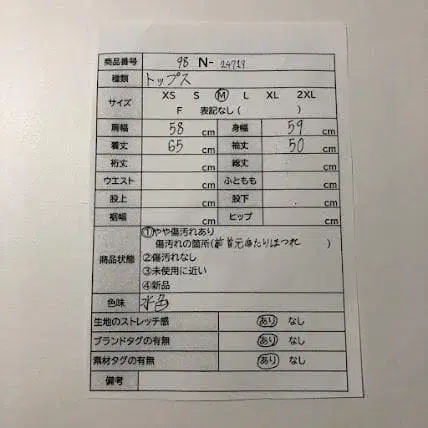 商品番号 98 N- 24719
種類 トップス
サイズ XS S M L XL 2XL
F 表記なし( )
肩幅 58 cm 身幅 59 cm
着丈 65 cm 袖丈 50 cm
裄丈 cm 総丈 cm
ウエスト cm ふともも cm
股上 cm 股下 cm
裾幅 cm ヒップ cm
商品状態 ①やや傷汚れあり
傷汚れの箇所(前首元あたりほつれ )
②傷汚れなし
③未使用に近い
④新品
色味 水色
生地のストレッチ感 あり なし
ブランドタグの有無 あり なし
素材タグの有無 あり なし
備考